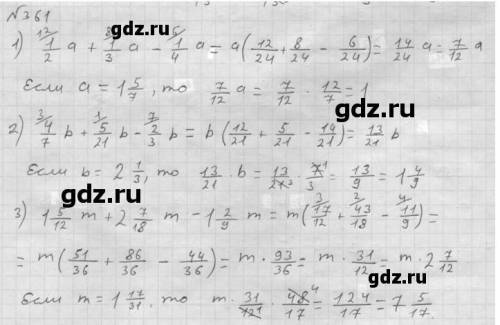 №361
1) 12/ 1/2 a + 8/ 1/3 a - 6/ 1/4 a = a(12/24 + 8/24 - 6/24) = 14/24 a = 7/12 a
Если a = 1 5/7, то 7/12 a = 7/12 · 12/7 = 1
2) 3/ 4/7 b + 1/ 5/21 b - 7/ 2/3 b = b(12/21 + 5/21 - 14/21) = 13/21 b
Если b = 2 1/3, то 13/21 · b = 13/21 3 · 7 1/3 = 13/9 = 1 4/9
3) 1 5/12 m + 2 7/18 m - 1 2/9 m = m(3/ 17/12 + 2/ 43/18 - 4/ 11/9) =
= m(51/36 + 86/36 - 44/36) = m · 93/36 = m · 31/12 = m · 2 7/12
Если m = 1 17/31, то m · 31/12 1 · 48 4/17 = 124/17 = 7 5/17